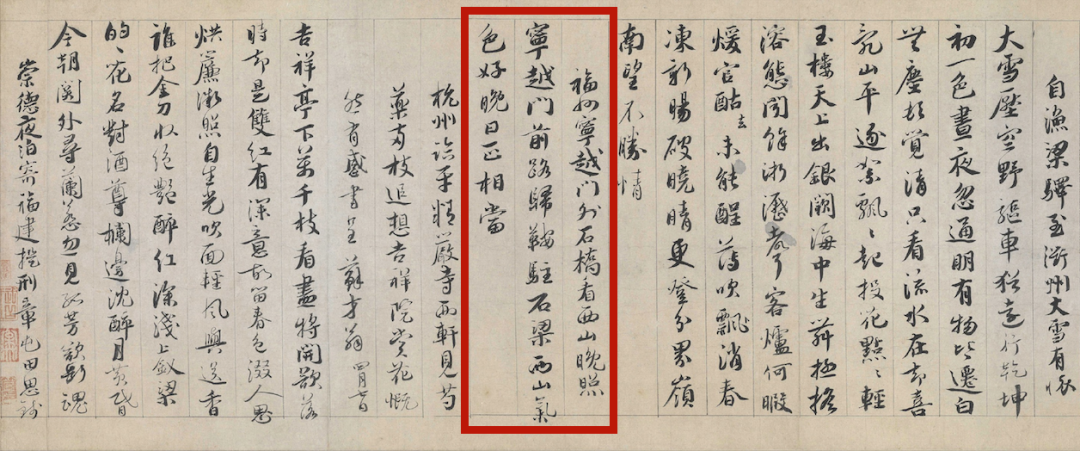 自漁梁驛至衢州大雪有懷
大雪壓空野驅車猶遠行乾坤
初一色晝夜忽通明有物皆遷白
無塵頓覺清只看流水在却喜
亂山平逐絮飄〻起投花點〻輕
玉樓天上出銀闕海中生舞極搖
溶態聞餘淅瀝聲客爐何暇
煖官酤去未能醒薄吹消春
凍新暘破曉晴更登分界嶺
南望不勝情
福州寧越門外石橋看西山晚照
寧越門前路歸鞍駐石梁西山氣
色好晚日正相當
杭州臨平精嚴寺西軒見芍
藥兩枝追想吉祥院賞花慨
然有感書呈蘇才翁
吉祥亭下萬千枝看盡將開欲落
時却是雙紅有深意故留春色綴人思
烘簾微照自生光吹面輕風與送香
誰把金刀收絕艷醉紅深淺上釵梁
的〻花名對酒尊欄邊沈醉月黃昏
今朝關外尋蘭蕙忽見孤芳欲斷魂
崇德夜泊寄福建提刑章屯田思錢